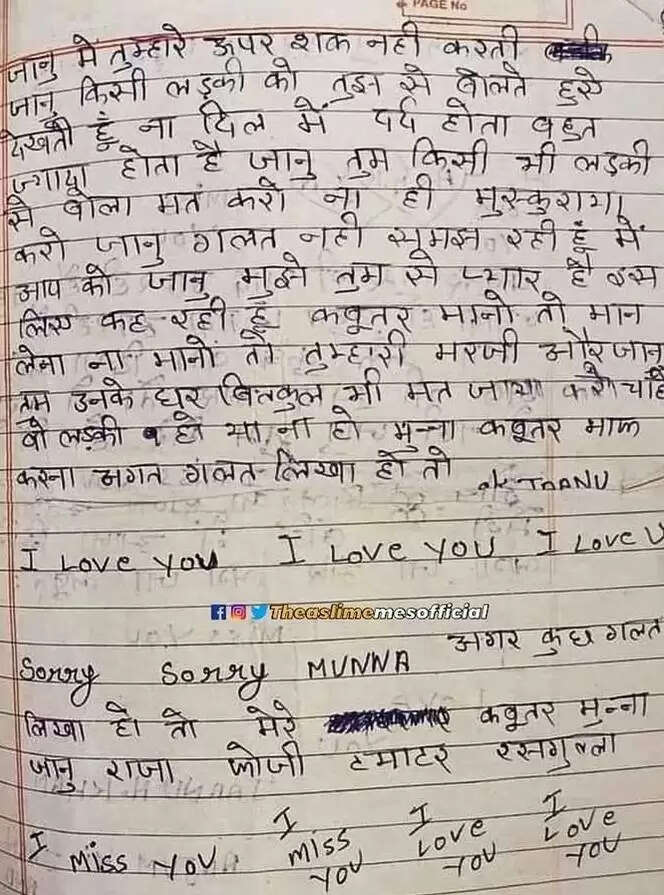 PAGE No
जानु मे तुम्हारे ऊपर शक नही करती
जानु किसी लड़की को तुझ से बोलते हुऐ
देखती हूँ ना दिल में दर्द होता बहुत
ज्यादा होता है जानु तुम किसी भी लडकी
से बोला मत करो ना ही मुस्कुराया
करो जानु गलत नही समझ रही हूँ में
आप को जानु मुझे तुम से प्यार है इस
लिए कह रही हूँ कबूतर मानो तो मान
लेना ना मानो तो तुम्हारी मरजी और जान
तुम उनके घर बिलकुल भी मत जाया करो चाहे
वो लडकी हो या ना हो मुन्ना कबूतर माफ
करना अगत गलत लिखा हो तो ok JAANU
I Love you I Love you I Love U
Theaslimememesofficial
Sorry Sorry MUNNA अगर कुछ गलत
लिखा हो तो मेरे कबूतर मुन्ना
जानु राजा फोजी टमाटर रसगुल्ला
I Miss you I Miss you I Love you I Love you